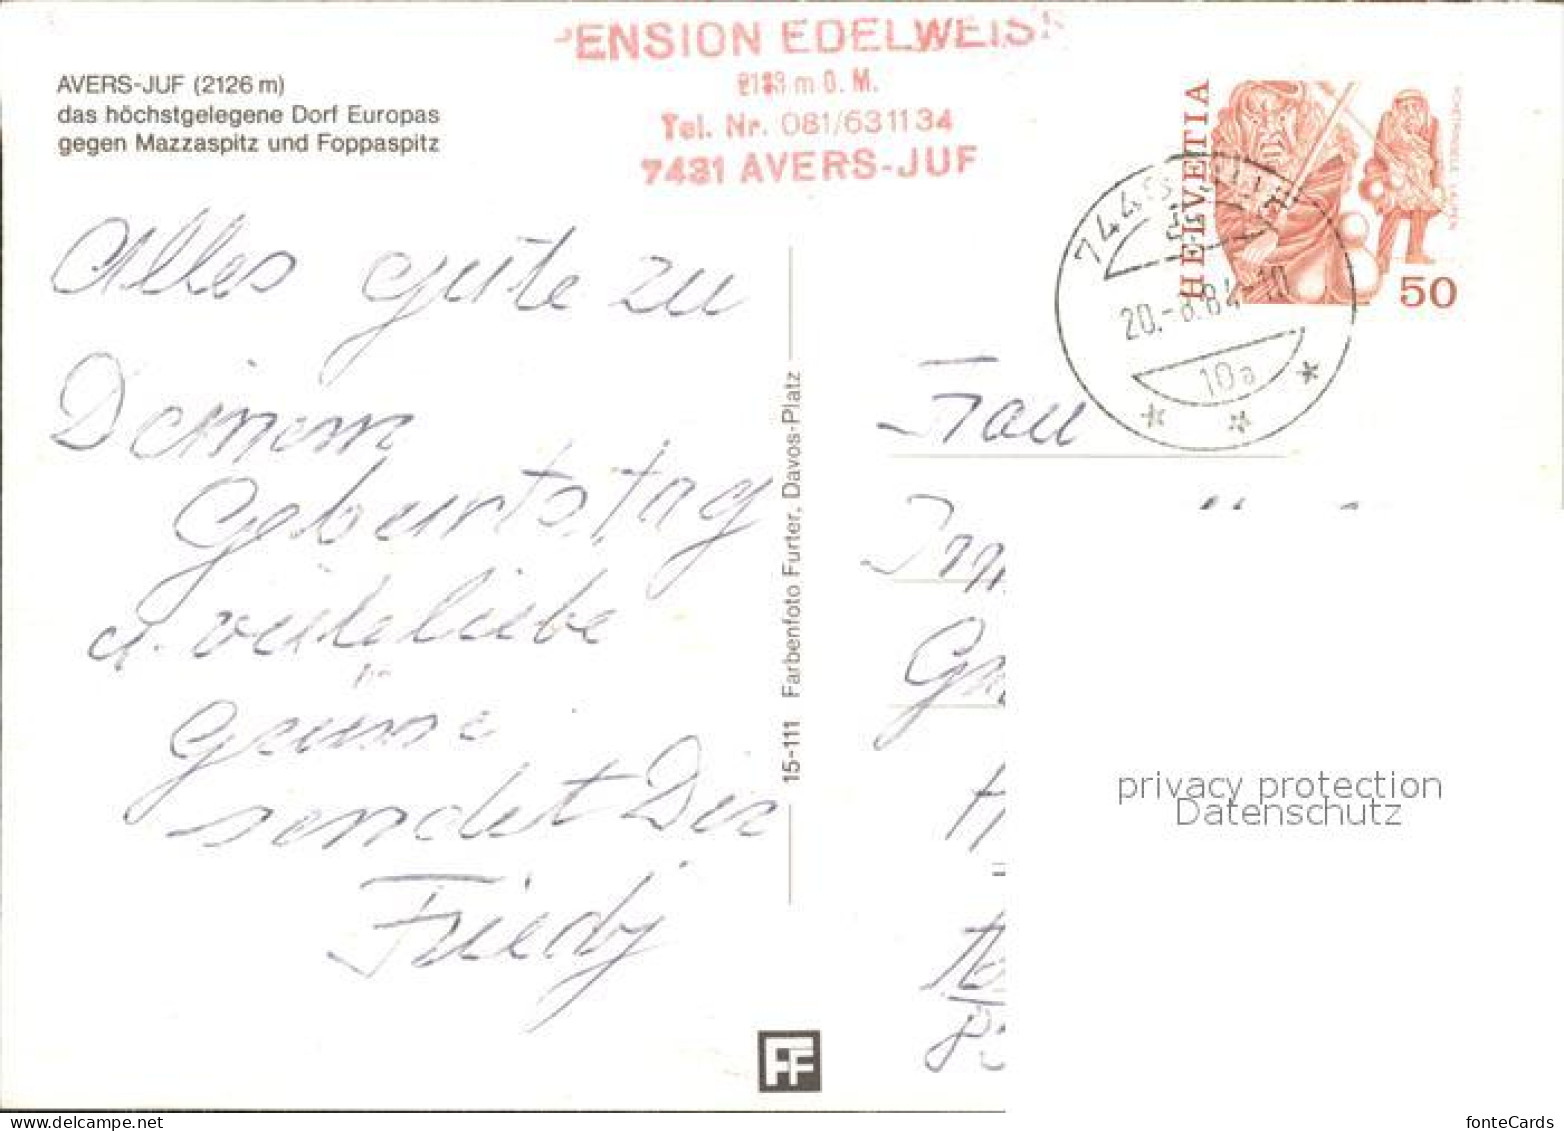 PENSION EDELWEISS
2133 m ü. M.
Tel. Nr. 081/63 11 34
7431 AVERS-JUF
AVERS-JUF (2126 m)
das höchstgelegene Dorf Europas
gegen Mazzaspitz und Foppaspitz
Alles gute zu
Deinem
Geburtstag
u. viele liebe
Grüsse
sendet Dir
Friedy
15-111 Farbenfoto Furter, Davos-Platz
FF
HELVETIA
50
20.-8.84-10
10a
Frau
privacy protection
Datenschutz
fonteCards
www.delcampe.net